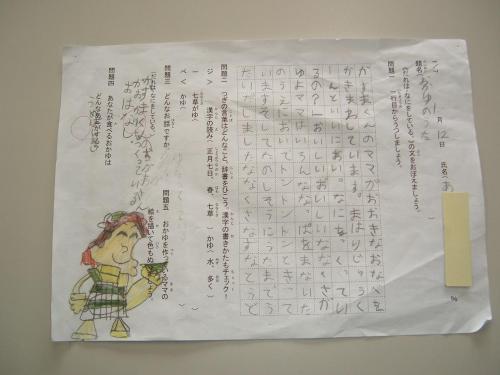 題名 おかゆのうた 1月12日 氏名(あ
「だれは、なにをしている。」の文をおぼえましょう。
問題一 一行目からうつしましょう。
かずまくんのママがおおきなおなべを
かきまわしています。まわりじゅうく
んといいにおい。なにを、くっている
るの?」おいしいおいしいななくさが
ゆよママはいろんなな、ぱをまないた
のうえにおいてトントントンときって
いますそしてたのしそうにうたまでう
たいだしましたななくさなずなとうど
問題二 つぎの言葉はどんなこと。辞書をひこう。漢字の書きかたもチェック!
ジ> 漢字の読み(正月七日、春、七草)かゆ(水、多く
一 七草がゆ( )
ベ< かゆ( )
問題三 どんなお話ですか。
「だれは、なにをしている。」
おはなし
問題四 あなたが食べるおかゆは
どんなあじがする
問題五 おかゆを作っているママの
絵を描いて色もぬりましょう